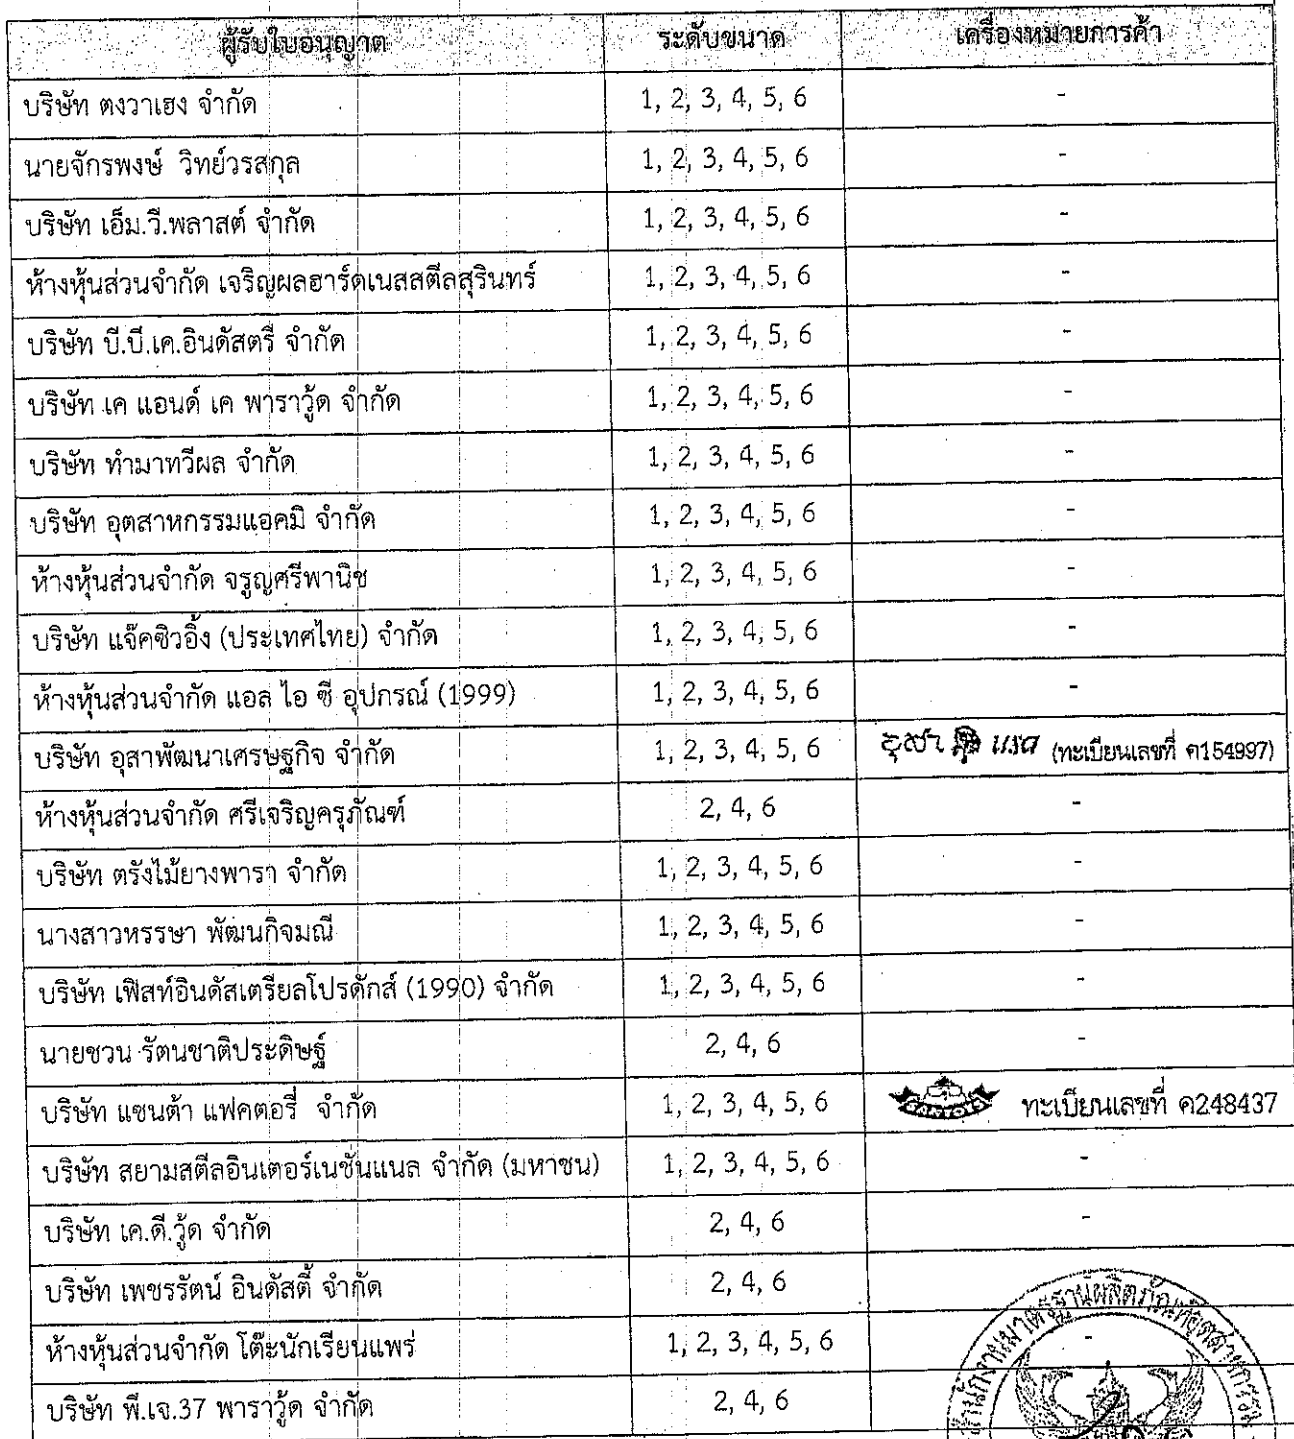 ผู้รับใบอนุญาต ระดับขนาด เครื่องหมายการค้า
บริษัท ตงวาเฮง จำกัด 1, 2, 3, 4, 5, 6 -
นายจักรพงษ์ วิทย์วรสกุล 1, 2, 3, 4, 5, 6 -
บริษัท เอ็ม.วี.พลาสต์ จำกัด 1, 2, 3, 4, 5, 6 -
ห้างหุ้นส่วนจำกัด เจริญผลฮาร์ดเนสสตีลสุรินทร์ 1, 2, 3, 4, 5, 6 -
บริษัท บี.บี.เค.อินดัสตรี่ จำกัด 1, 2, 3, 4, 5, 6 -
บริษัท เค แอนด์ เค พาราวู้ด จำกัด 1, 2, 3, 4, 5, 6 -
บริษัท ทำมาทวีผล จำกัด 1, 2, 3, 4, 5, 6 -
บริษัท อุตสาหกรรมแอคมิ จำกัด 1, 2, 3, 4, 5, 6 -
ห้างหุ้นส่วนจำกัด จรูญศรีพานิช 1, 2, 3, 4, 5, 6 -
บริษัท แจ๊คซิวอิ้ง (ประเทศไทย) จำกัด 1, 2, 3, 4, 5, 6 -
ห้างหุ้นส่วนจำกัด แอล ไอ ซี อุปกรณ์ (1999) 1, 2, 3, 4, 5, 6 -
บริษัท อุสาพัฒนาเศรษฐกิจ จำกัด 1, 2, 3, 4, 5, 6 (ทะเบียนเลขที่ ค154997)
ห้างหุ้นส่วนจำกัด ศรีเจริญครุภัณฑ์ 2, 4, 6 -
บริษัท ตรังไม้ยางพารา จำกัด 1, 2, 3, 4, 5, 6 -
นางสาวหรรษา พัฒนกิจมณี 1, 2, 3, 4, 5, 6 -
บริษัท เฟิสท์อินดัสเตรียลโปรดักส์ (1990) จำกัด 1, 2, 3, 4, 5, 6 -
นายชวน รัตนชาติประดิษฐ์ 2, 4, 6 -
บริษัท แซนต้า แฟคตอรี่ จำกัด 1, 2, 3, 4, 5, 6 ทะเบียนเลขที่ ค248437
บริษัท สยามสตีลอินเตอร์เนชั่นแนล จำกัด (มหาชน) 1, 2, 3, 4, 5, 6 -
บริษัท เค.ดี.วู้ด จำกัด 2, 4, 6 -
บริษัท เพชรรัตน์ อินดัสตี้ จำกัด 2, 4, 6
ห้างหุ้นส่วนจำกัด โต๊ะนักเรียนแพร่ 1, 2, 3, 4, 5, 6 -
บริษัท พี.เจ.37 พาราวู้ด จำกัด 2, 4, 6
สำนักงานมาตรฐานผลิตภัณฑ์อุตสาหกรรม